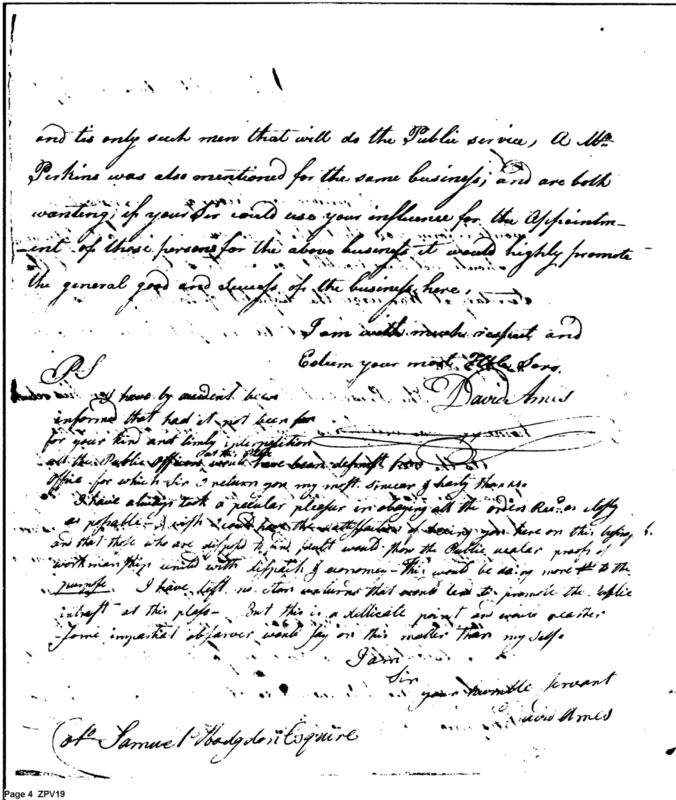 and tis only such men that will do the Public service, A Mr.
Perkins was also mentioned for the same business; and are both
wanting; if your Sir could use your influence for the Appointm-
ent of those persons for the above business it would highly promote
the general good and Success of the business here.
I am with much respect and
Esteem your most Hble Serv.
David Ames
PS
I have by accident been
informed that had it not been for
for your kind and timly interposition
all the Public Officers at this place would have been dismist from
Office for which Sir I return you my most sincear & harty thanks
I have always took a peculer pleasur in obaying all the orders Recd. as
as possable I wish could have the satisfaction of seeing you here on this
and that those who are disposed to find fault would show the Public proofs of
workmanship united with dispatch & economey this would be doing more to the
purpose. I have left no that would tend to promote the Public
intrest at this place But this is a dellicate point and would reather
some impartial observer would say on this matter than my self.
I am
Sir
your humble servant
David Ames
Colo. Samuel Hodgdon Esquire
Page 4 ZPV19